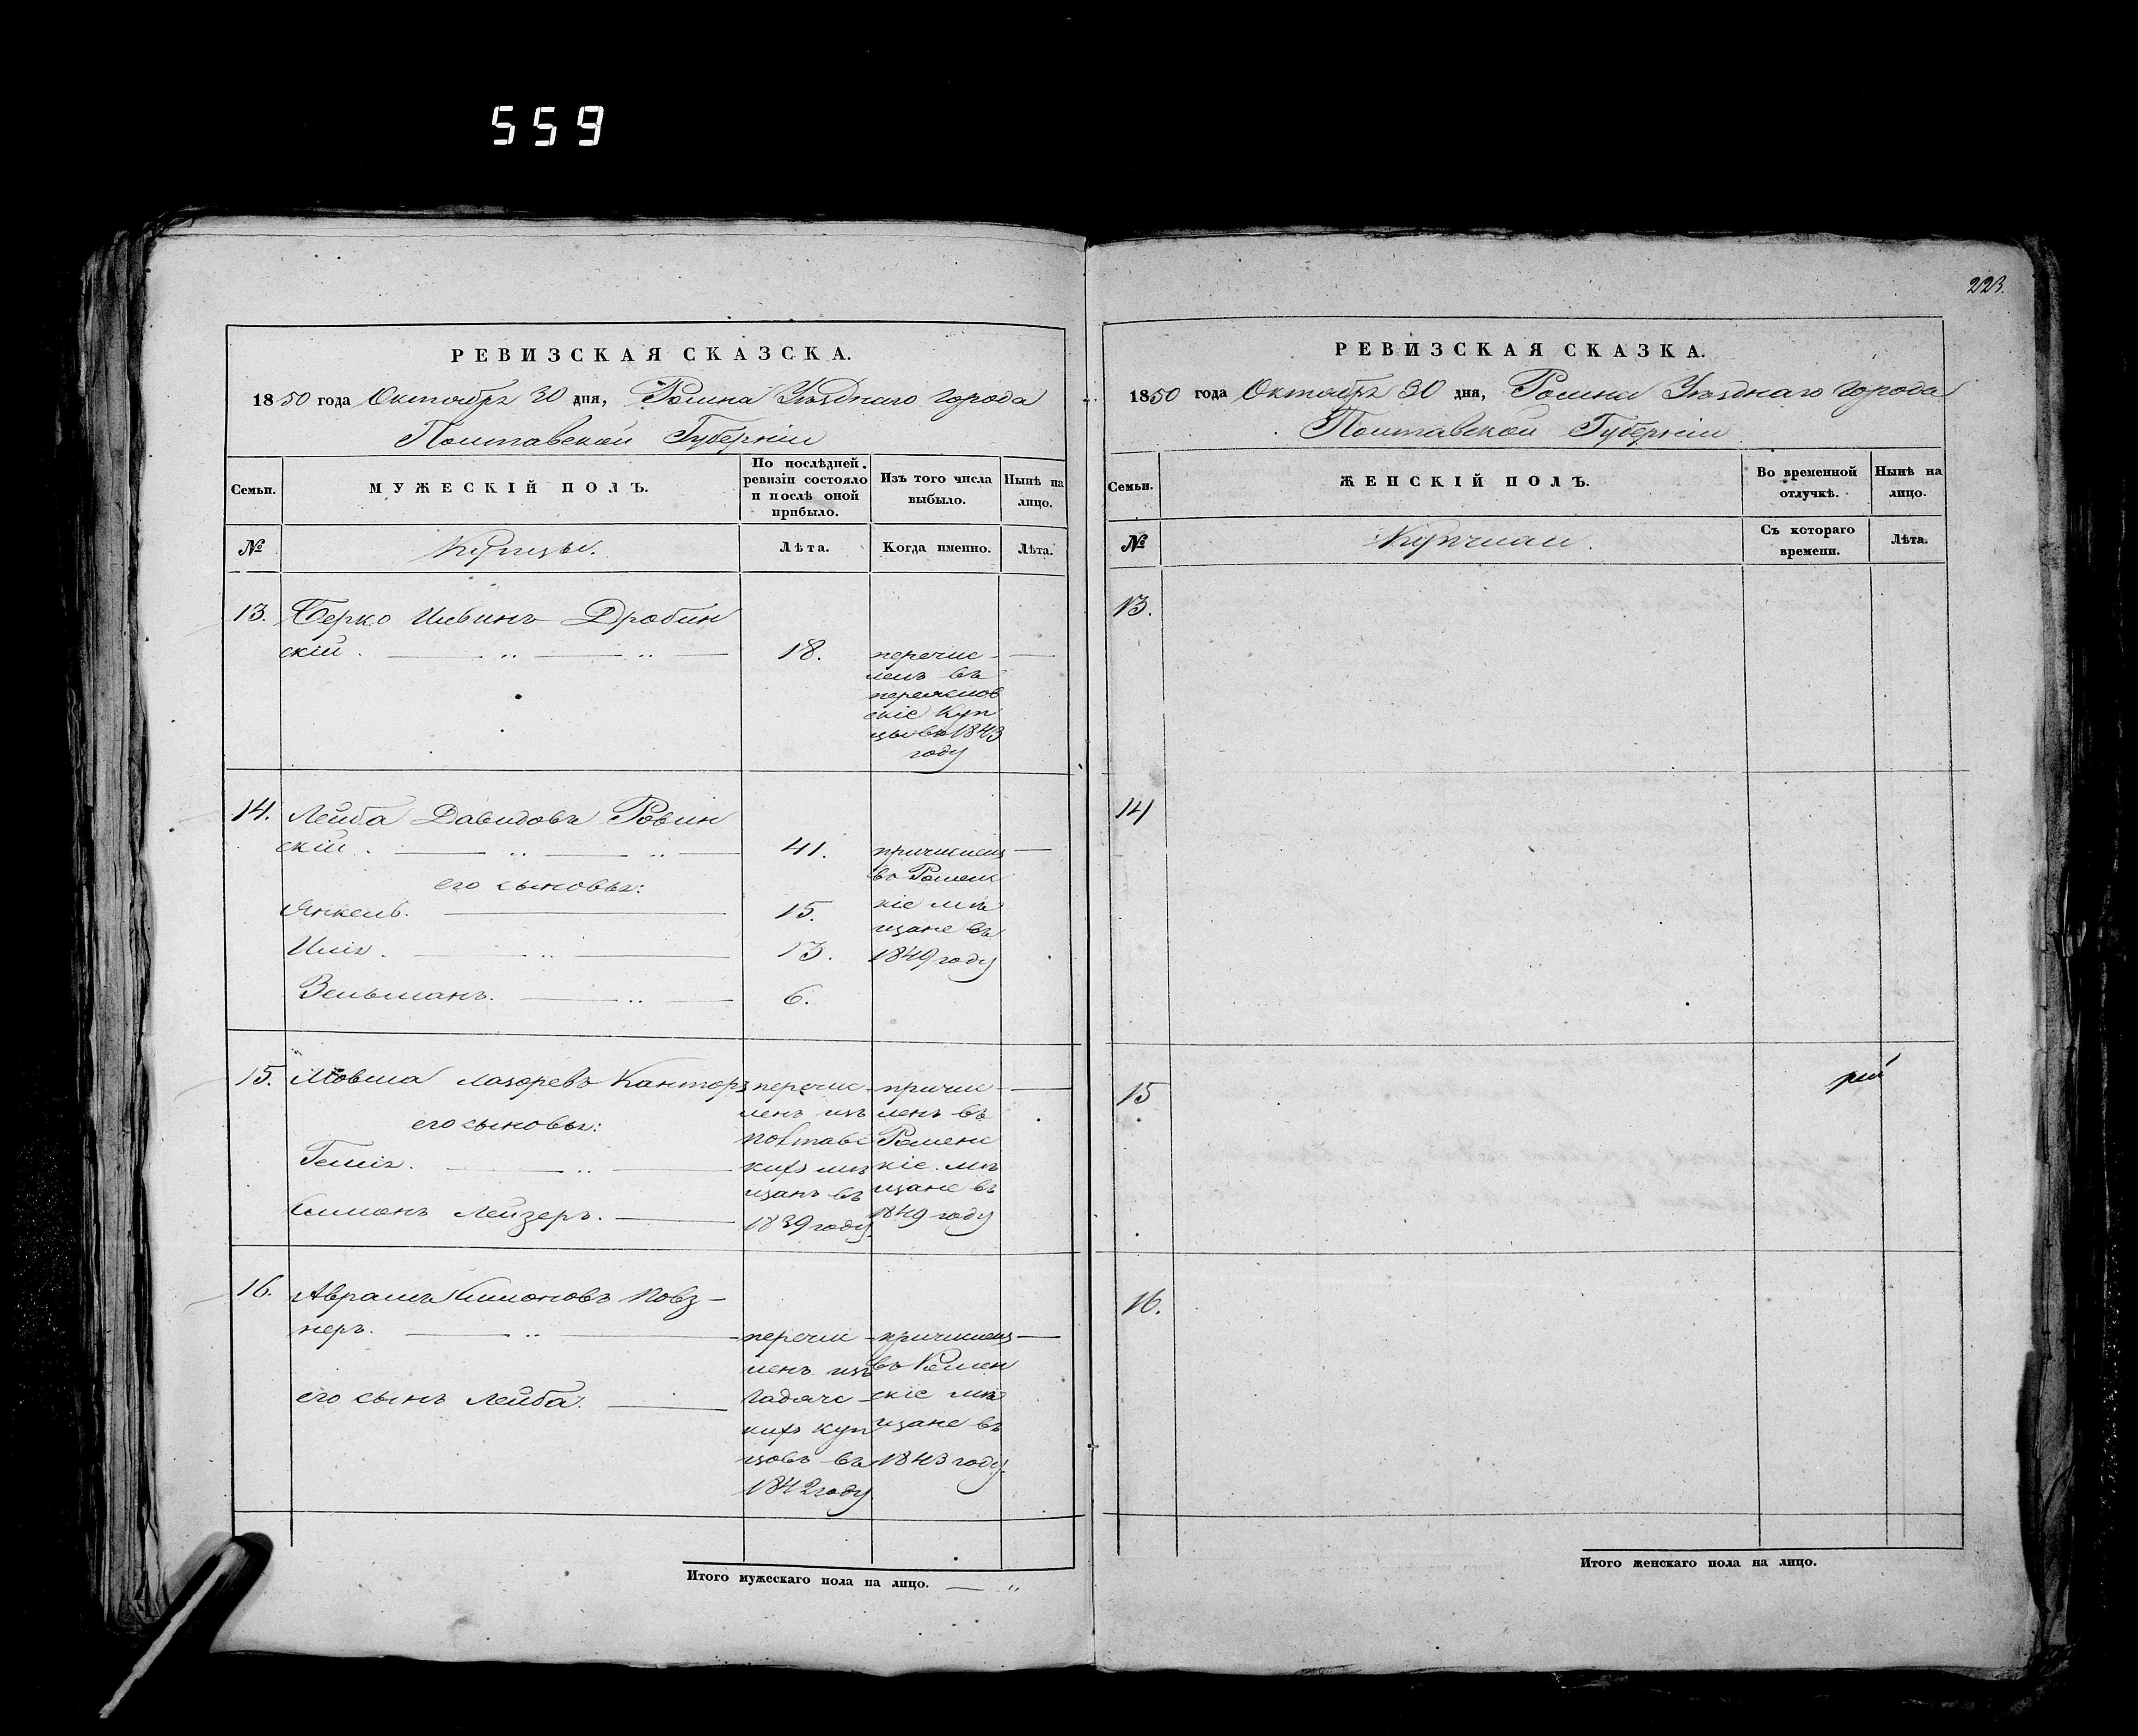 559
223.
РЕВИЗСКАЯ СКАЗСКА.
1850 года Октября 30 дня, Ромна Уѣзднаго города
Полтавской Губерніи
Семьи.
МУЖЕСКІЙ ПОЛЪ.
По послѣдней ревизіи состояло и послѣ оной прибыло.
Изъ того числа выбыло.
Нынѣ на лицо.
№
Купцы.
Лѣта.
Когда именно.
Лѣта.
13. Берко Дробин
скій. 18. перечис
ленъ въ
скіе Куп
цы въ 1843
году
14. Лейба Давидовъ Ровин
скій. 41. причисленъ
въ Ромен
его сыновья:
Янкель. 15. скіе мѣ
щане въ
13. 1849 году
Зельманъ. 6.
15. Мовша Лазоревъ Канторъ
его сыновья:
Симонъ Лейзеръ.
перечис
ленъ изъ
Полтавс
кихъ мѣ
щанъ въ
1839 году.
причис
ленъ въ
Ромен
кіе мѣ
щане въ
1849 году
16. Аврамъ Симоновъ Повз
неръ.
его сынъ Лейба.
перечис
ленъ изъ
Гадячс
кихъ куп
цовъ въ
1842 году
причисленъ
въ Ромен
скіе мѣ
щане въ
1843 году.
Итого мужескаго пола на лицо. — „
РЕВИЗСКАЯ СКАЗКА.
1850 года Октября 30 дня, Ромна Уѣзднаго города
Полтавской Губерніи
Семьи.
ЖЕНСКІЙ ПОЛЪ.
Во временной отлучкѣ.
Нынѣ на лицо.
№
Съ котораго времени.
Лѣта.
13.
14
15
16.
Итого женскаго пола на лицо.